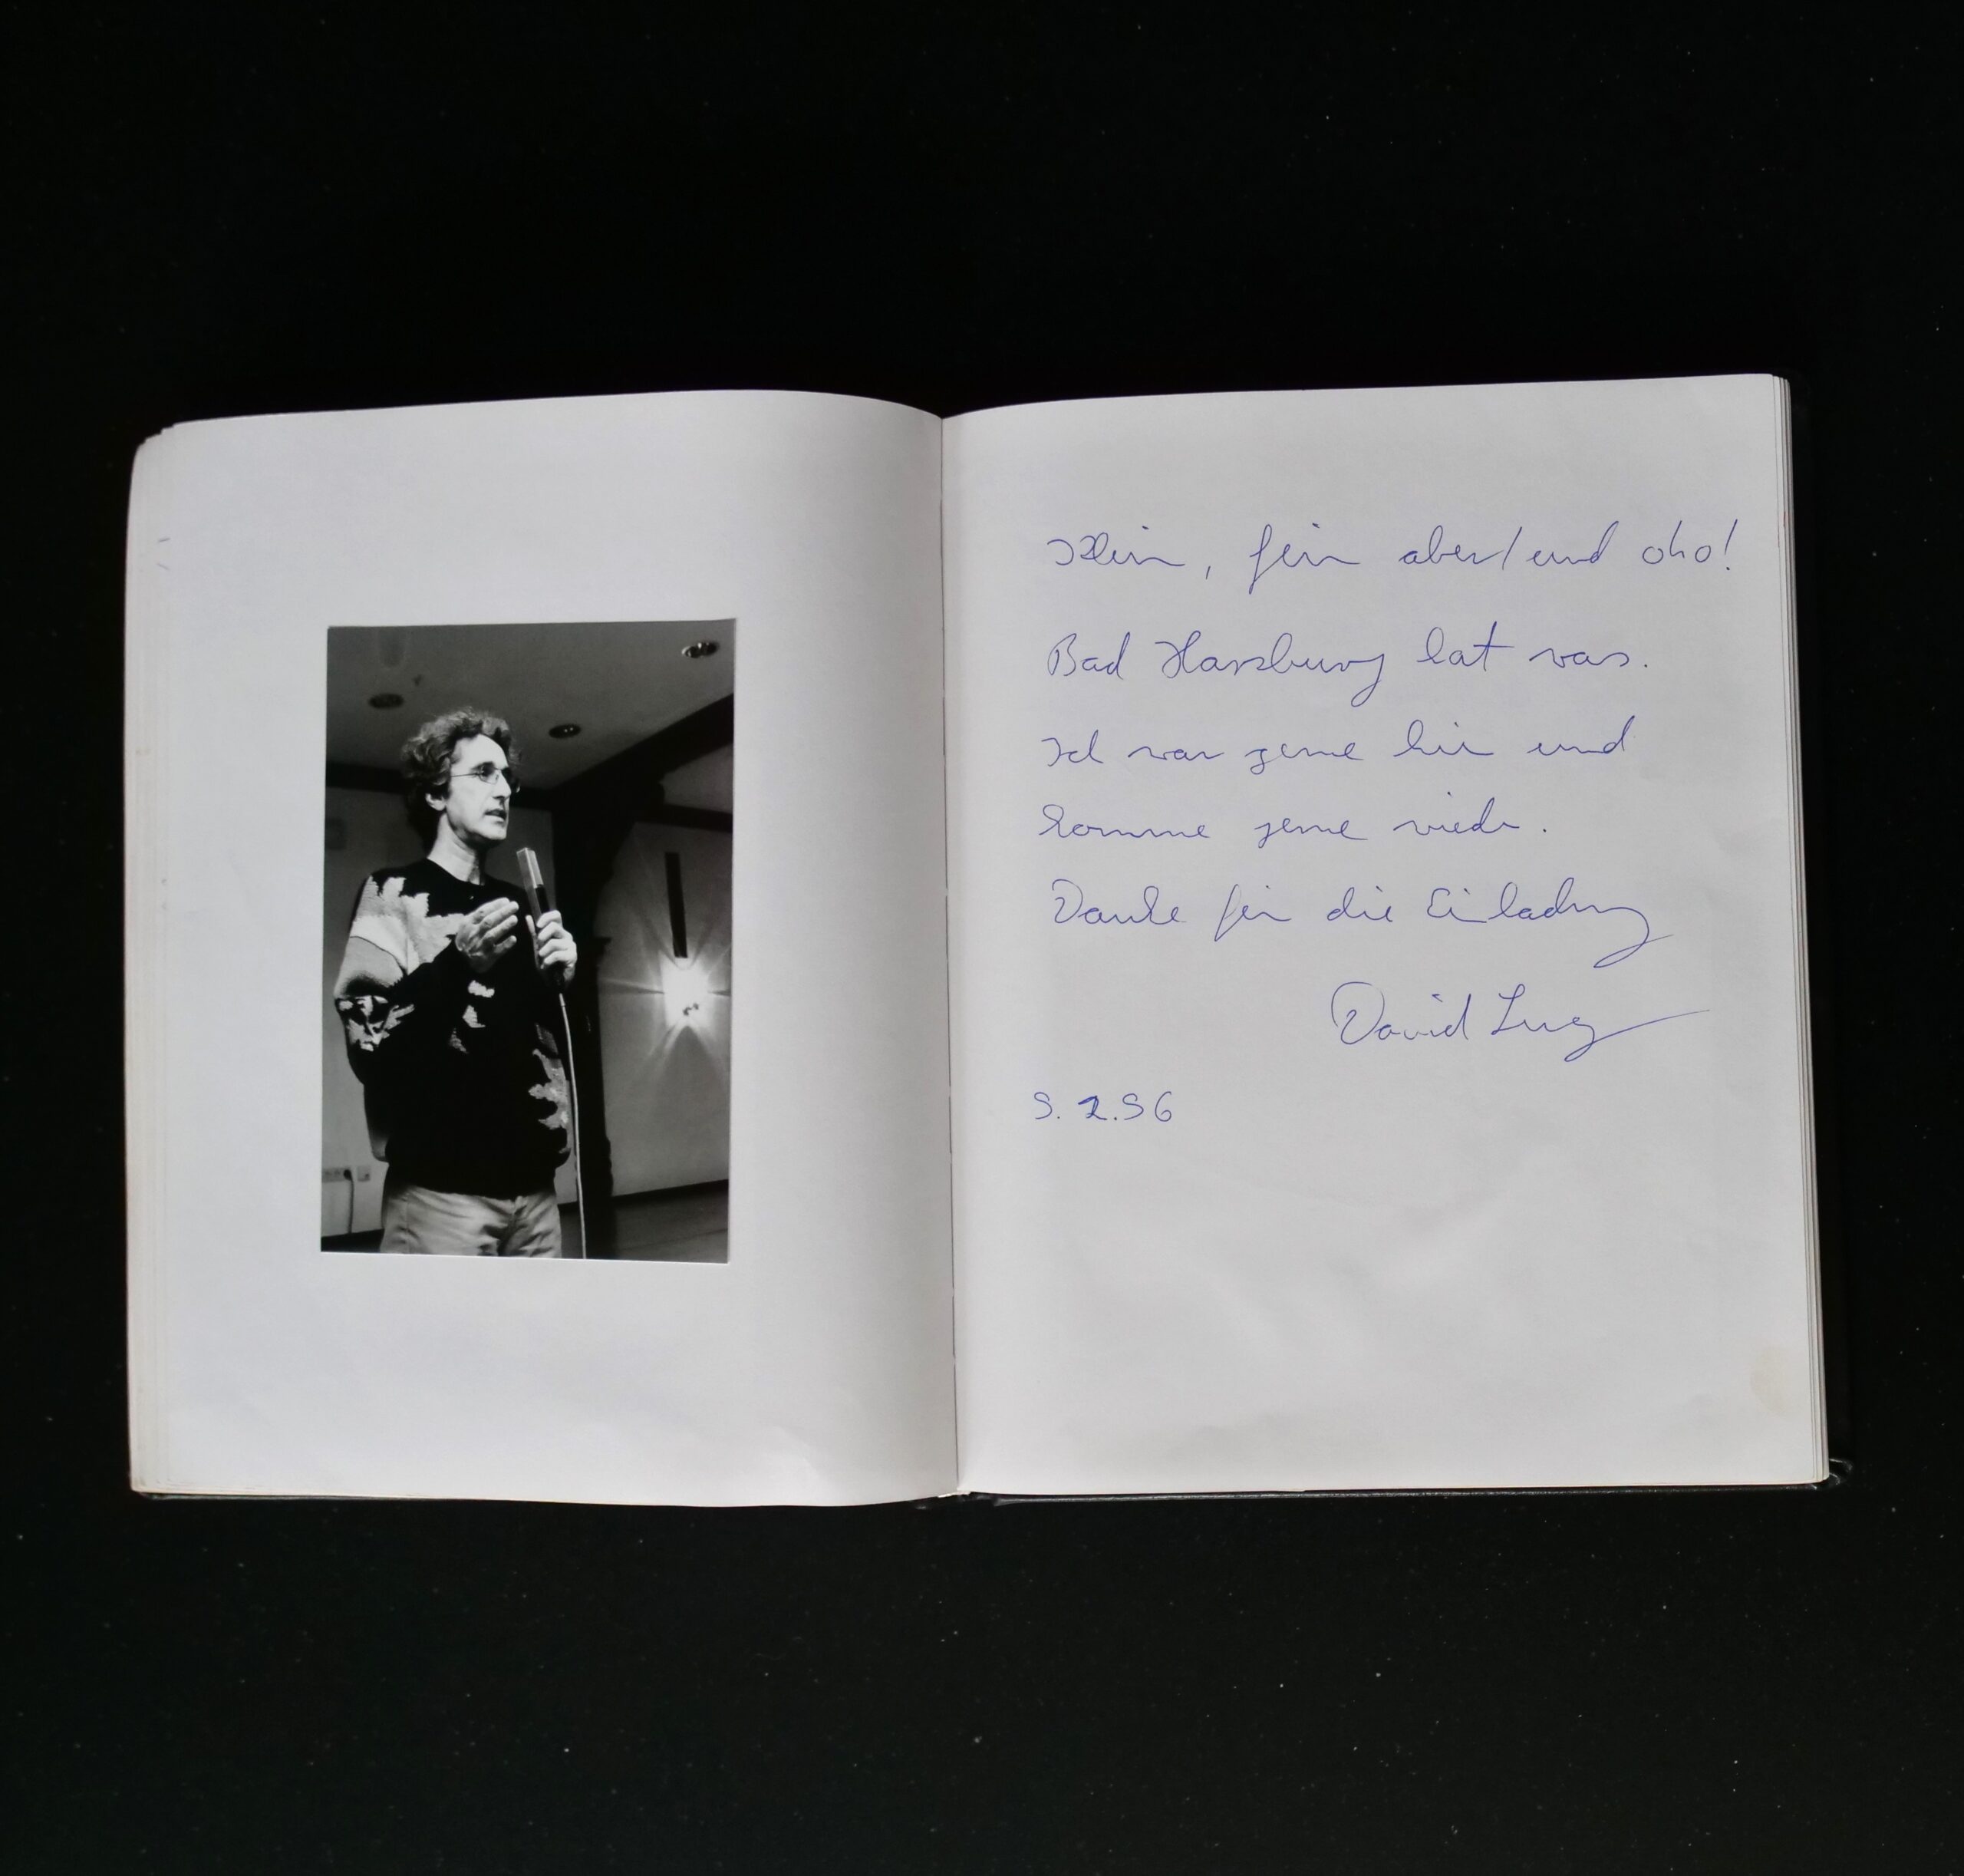 Klein, fein aber/und oho!
Bad Harzburg hat was.
Ich war gerne hier und
komme gerne wieder.
Danke für die Einladung
David
9.2.96